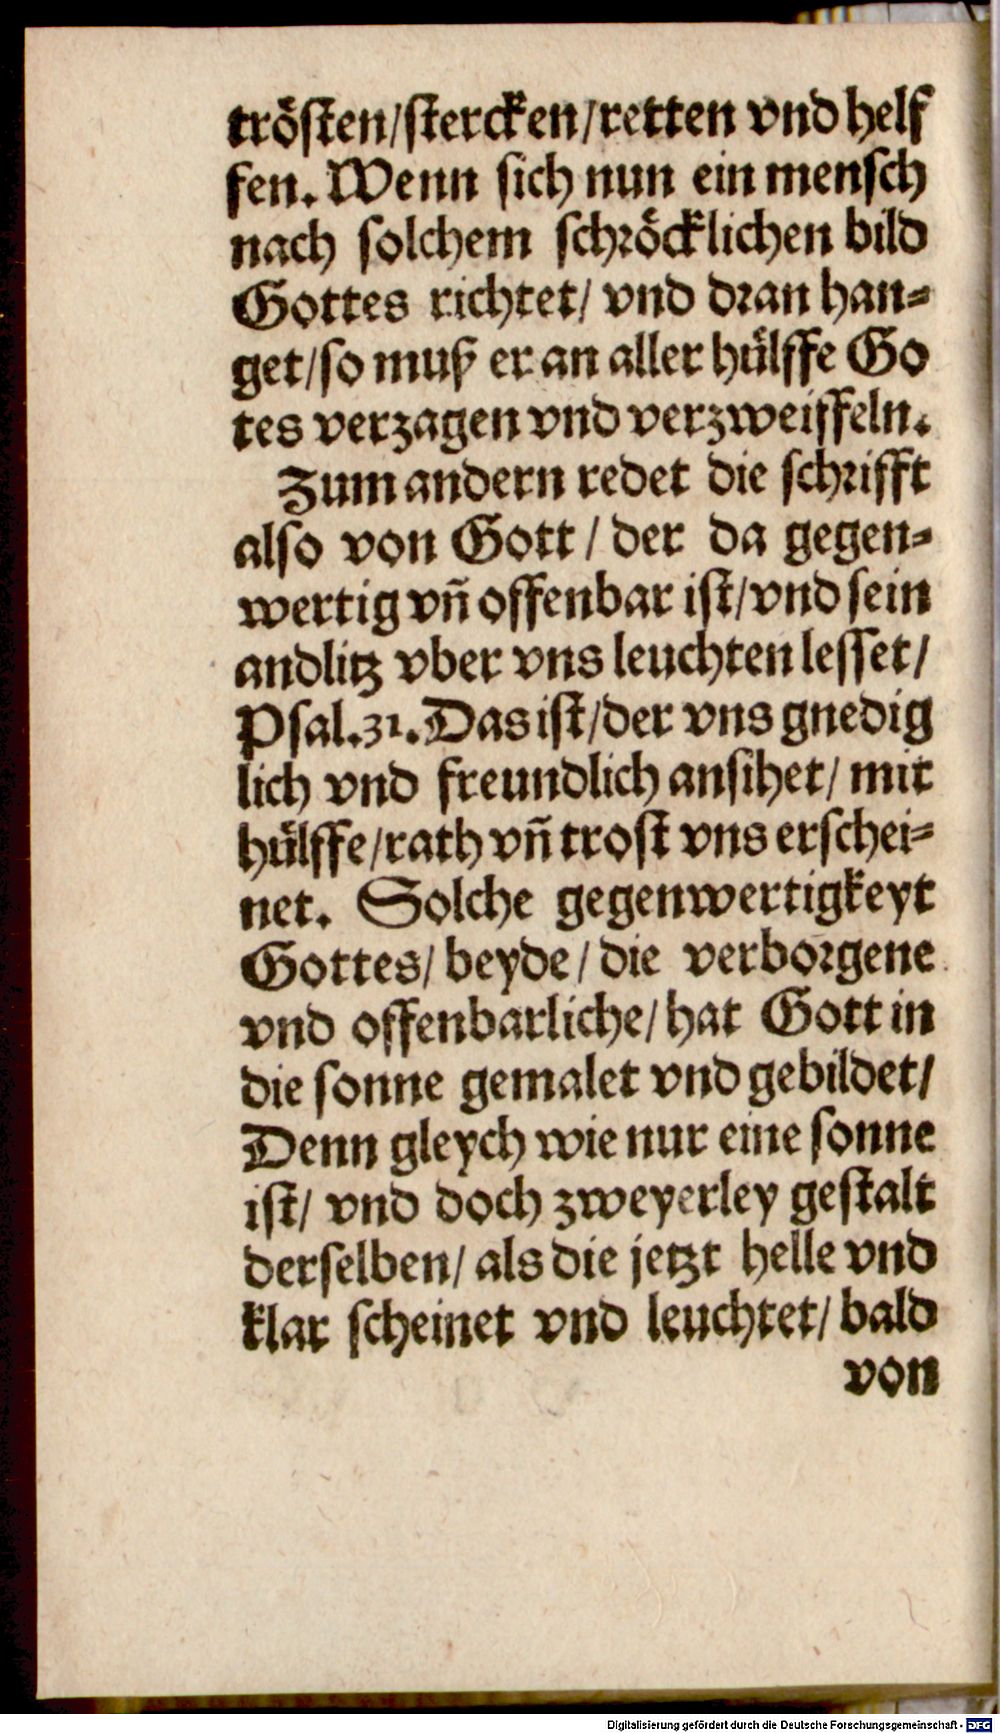 trösten/stercken/retten vnd helf
fen. Wenn sich nun ein mensch
nach solchem schröcklichen bild
Gottes richtet/ vnd dran han=
get/so muß er an aller hülffe Go
tes verzagen vnd verzweiffeln.
Zum andern redet die schrifft
also von Gott / der da gegen=
wertig vñ offenbar ist/vnd sein
andlitz vber vns leuchten lesset/
Psal.31. Das ist/der vns gnedig
lich vnd freundlich ansihet/ mit
hülffe/rath vñ trost vns erschei=
net. Solche gegenwertigkeyt
Gottes/ beyde/ die verborgene
vnd offenbarliche/ hat Gott in
die sonne gemalet vnd gebildet/
Denn gleych wie nur eine sonne
ist/ vnd doch zweyerley gestalt
derselben/ als die jetzt helle vnd
klar scheinet vnd leuchtet/ bald
von
Digitalisierung gefördert durch die Deutsche Forschungsgemeinschaft - DFG